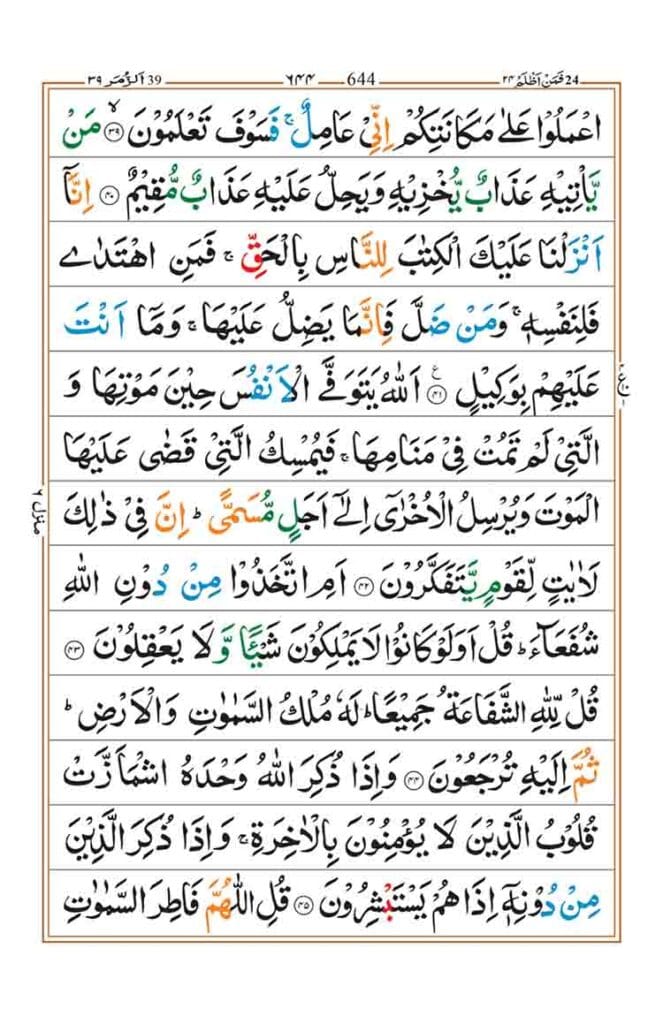 اَلزُّمَر ٣٩ 39 ٦٤٤ 644 فَمَنْ اَظْلَمُ ٢٤ 24
اعْمَلُوْا عَلٰى مَكَانَتِكُمْ اِنِّىْ عَامِلٌ ۚ فَسَوْفَ تَعْلَمُوْنَ ۙ﴿۳۹﴾ مَنْ
يَّاْتِيْهِ عَذَابٌ يُّخْزِيْهِ وَيَحِلُّ عَلَيْهِ عَذَابٌ مُّقِيْمٌ ﴿۴۰﴾ اِنَّاۤ
اَنْزَلْنَا عَلَيْكَ الْكِتٰبَ لِلنَّاسِ بِالْحَقِّ ۚ فَمَنِ اهْتَدٰى
فَلِنَفْسِهٖ ۚ وَمَنْ ضَلَّ فَاِنَّمَا يَضِلُّ عَلَيْهَا ۚ وَمَاۤ اَنْتَ
عَلَيْهِمْ بِوَكِيْلٍ ﴿۴۱﴾ اَللّٰهُ يَتَوَفَّى الْاَنْفُسَ حِيْنَ مَوْتِهَا وَ
الَّتِىْ لَمْ تَمُتْ فِىْ مَنَامِهَا ۚ فَيُمْسِكُ الَّتِىْ قَضٰى عَلَيْهَا
الْمَوْتَ وَيُرْسِلُ الْاُخْرٰٓى اِلٰٓى اَجَلٍ مُّسَمًّى ؕ اِنَّ فِىْ ذٰلِكَ
لَاٰيٰتٍ لِّقَوْمٍ يَّتَفَكَّرُوْنَ ﴿۴۲﴾ اَمِ اتَّخَذُوْا مِنْ دُوْنِ اللّٰهِ
شُفَعَآءَ ؕ قُلْ اَوَلَوْ كَانُوْا لَا يَمْلِكُوْنَ شَيْـًٔا وَّلَا يَعْقِلُوْنَ ﴿۴۳﴾
قُلْ لِّلّٰهِ الشَّفَاعَةُ جَمِيْعًا ؕ لَهٗ مُلْكُ السَّمٰوٰتِ وَالْاَرْضِ ؕ
ثُمَّ اِلَيْهِ تُرْجَعُوْنَ ﴿۴۴﴾ وَاِذَا ذُكِرَ اللّٰهُ وَحْدَهُ اشْمَاَزَّتْ
قُلُوْبُ الَّذِيْنَ لَا يُؤْمِنُوْنَ بِالْاٰخِرَةِ ۚ وَاِذَا ذُكِرَ الَّذِيْنَ
مِنْ دُوْنِهٖۤ اِذَا هُمْ يَسْتَبْشِرُوْنَ ﴿۴۵﴾ قُلِ اللّٰهُمَّ فَاطِرَ السَّمٰوٰتِ
منزل ٦